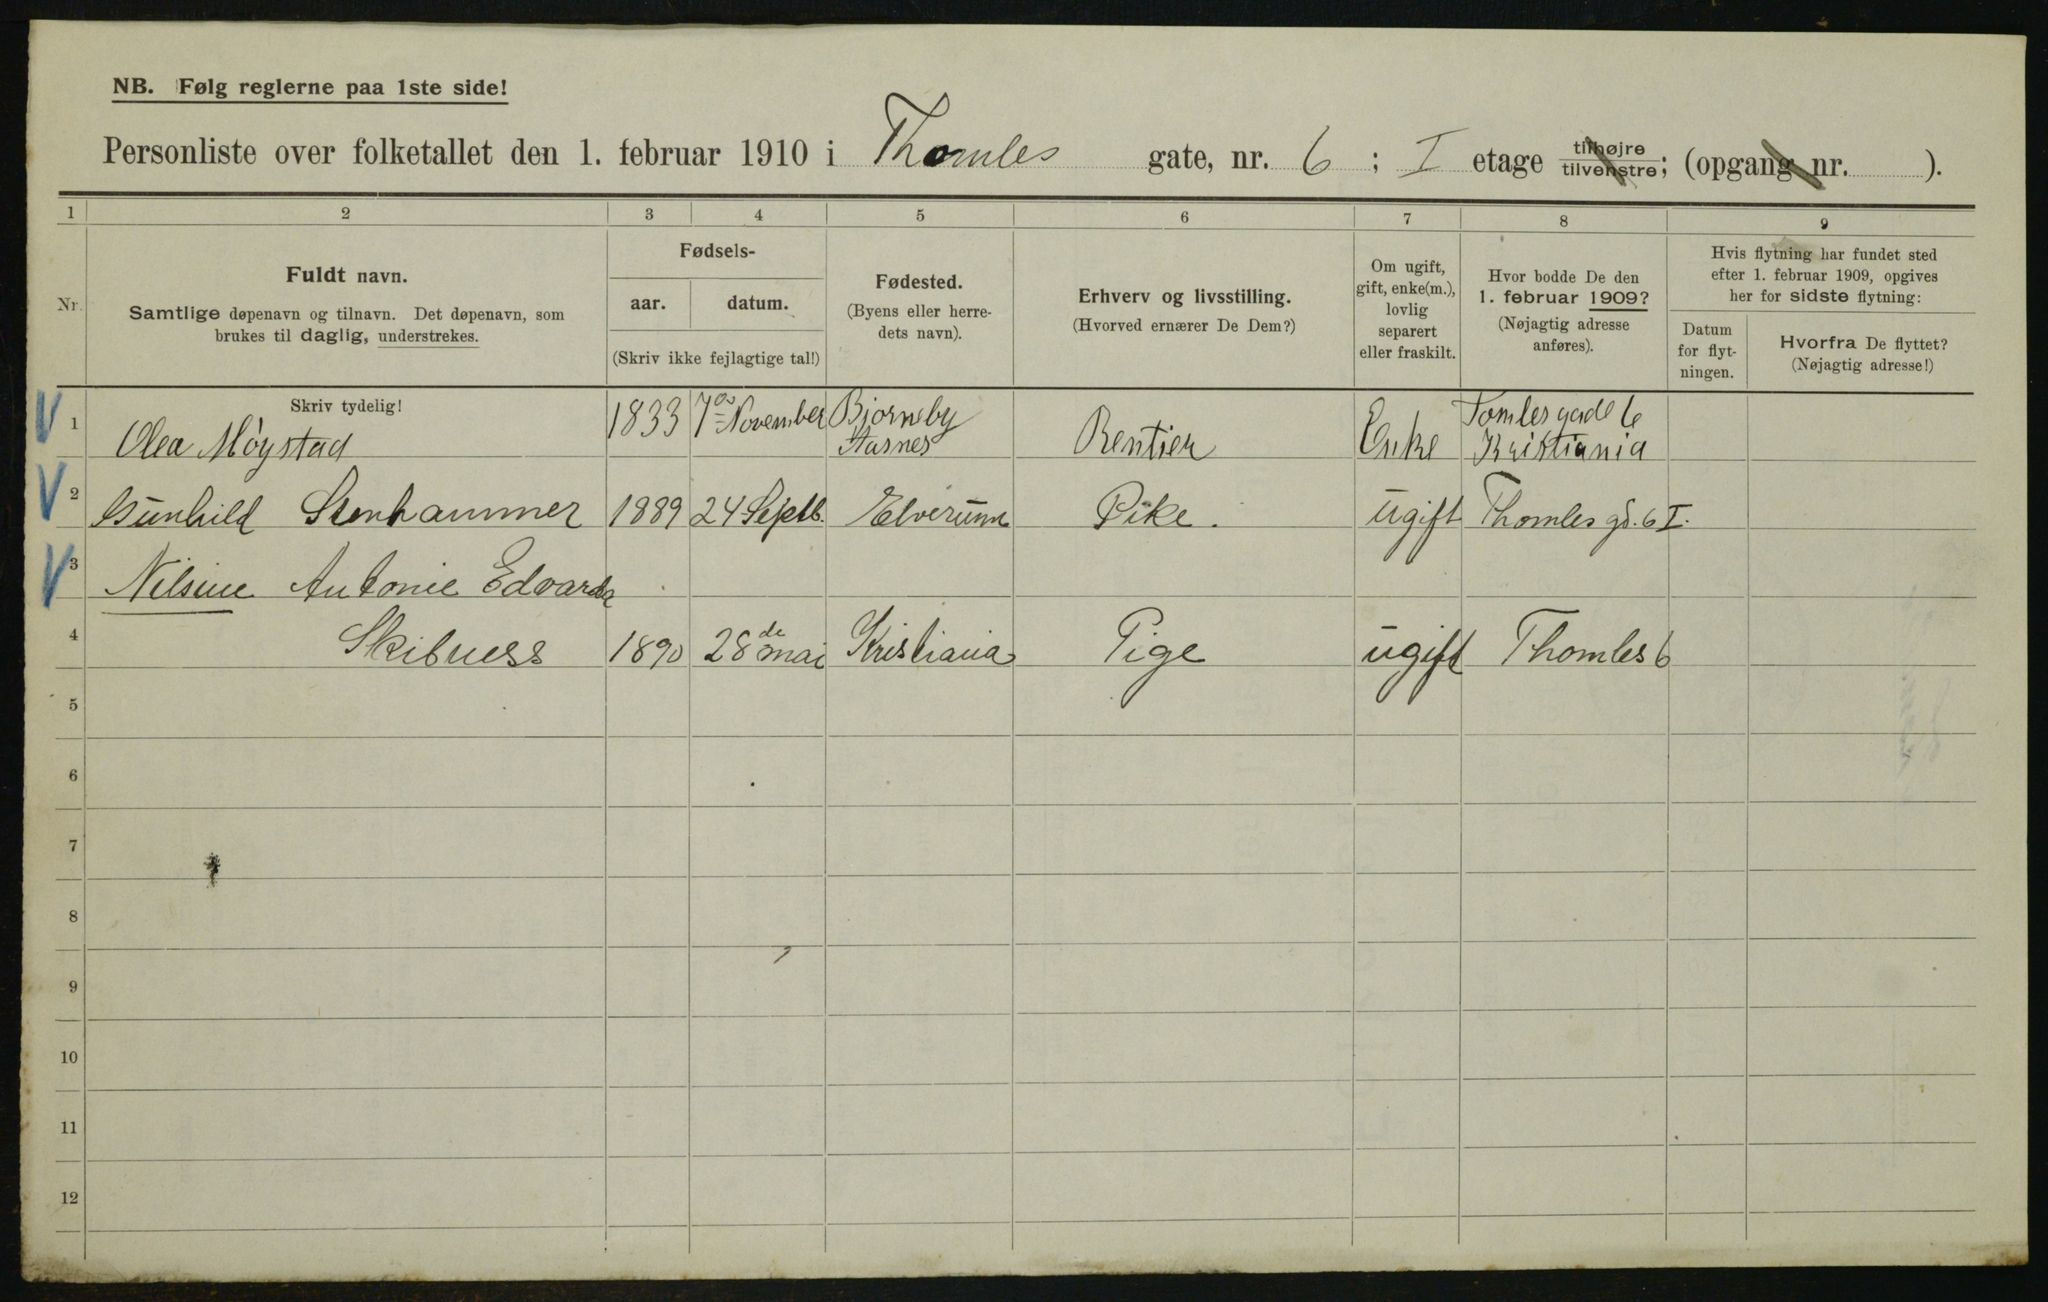 NB. Følg reglerne paa 1ste side!
Personliste over folketallet den 1. februar 1910 i Thomles gate, nr. 6 ; I etage tilhøjre tilvenstre; (opgang nr. ).
1 2 3 4 5 6 7 8 9
Nr.
Fuldt navn.
Samtlige døpenavn og tilnavn. Det døpenavn, som
brukes til daglig, understrekes.
Fødsels-
aar. datum.
(Skriv ikke fejlagtige tal!)
Fødested.
(Byens eller herre-
dets navn).
Erhverv og livsstilling.
(Hvorved ernærer De Dem?)
Om ugift,
gift, enke(m.),
lovlig
separert
eller fraskilt.
Hvor bodde De den
1. februar 1909?
(Nøjagtig adresse
anføres).
Hvis flytning har fundet sted
efter 1. februar 1909, opgives
her for sidste flytning:
Datum
for flyt-
ningen.
Hvorfra De flyttet?
(Nøjagtig adresse!)
Skriv tydelig!
1 Olea Möystad 1833 7 November Bjorneby Aasnes Rentier Enke Tomlesgade 6 Kristiania
2 Gunhild Stenhammer 1889 24 Septb. Elverum Pike. ugift Thomles gd. 6 I.
3 Nilsine Antonie Edvarda
4 Skibness 1890 28de mai Kristiania Pige ugift Thomles 6
5
6
7
8
9
10
11
12